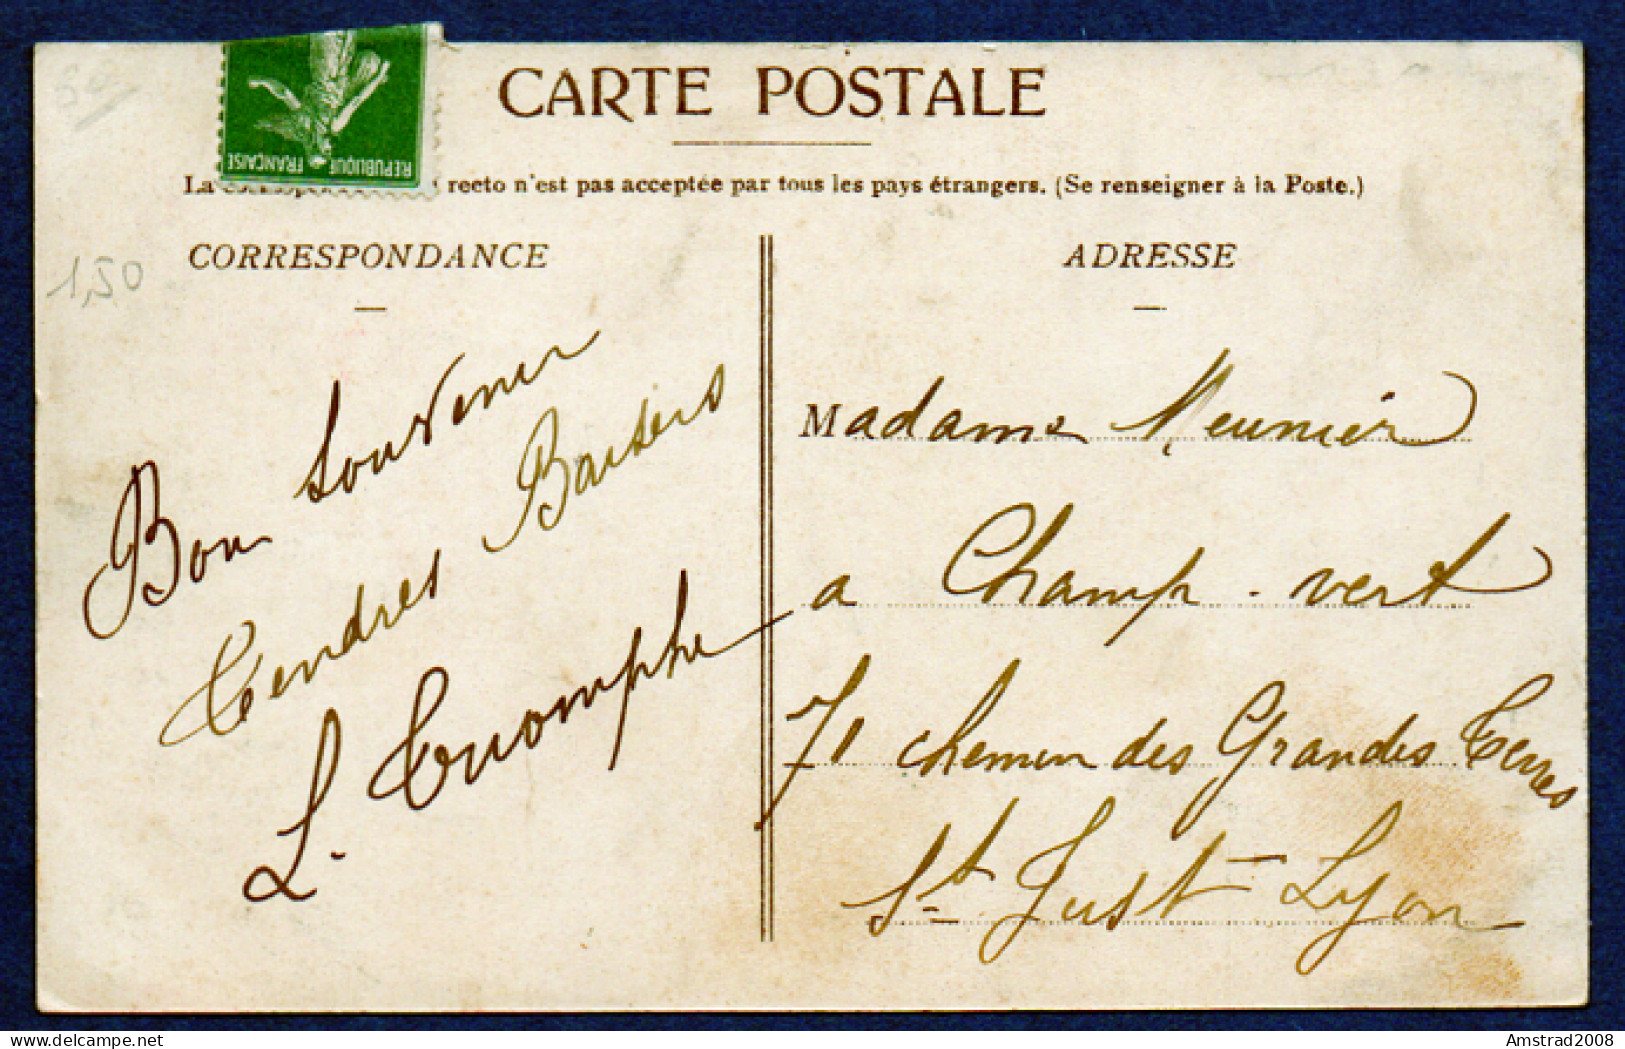 50
CARTE POSTALE
RÉPUBLIQUE FRANÇAISE
La recto n'est pas acceptée par tous les pays étrangers. (Se renseigner à la Poste.)
1,50
CORRESPONDANCE
Bon Souvenir
Tendres Baisers
L. Triomphe
ADRESSE
Madame Meunier
a Champ-vert
71 chemin des Grandes Terres
St. Just Lyon
Amstrad2008